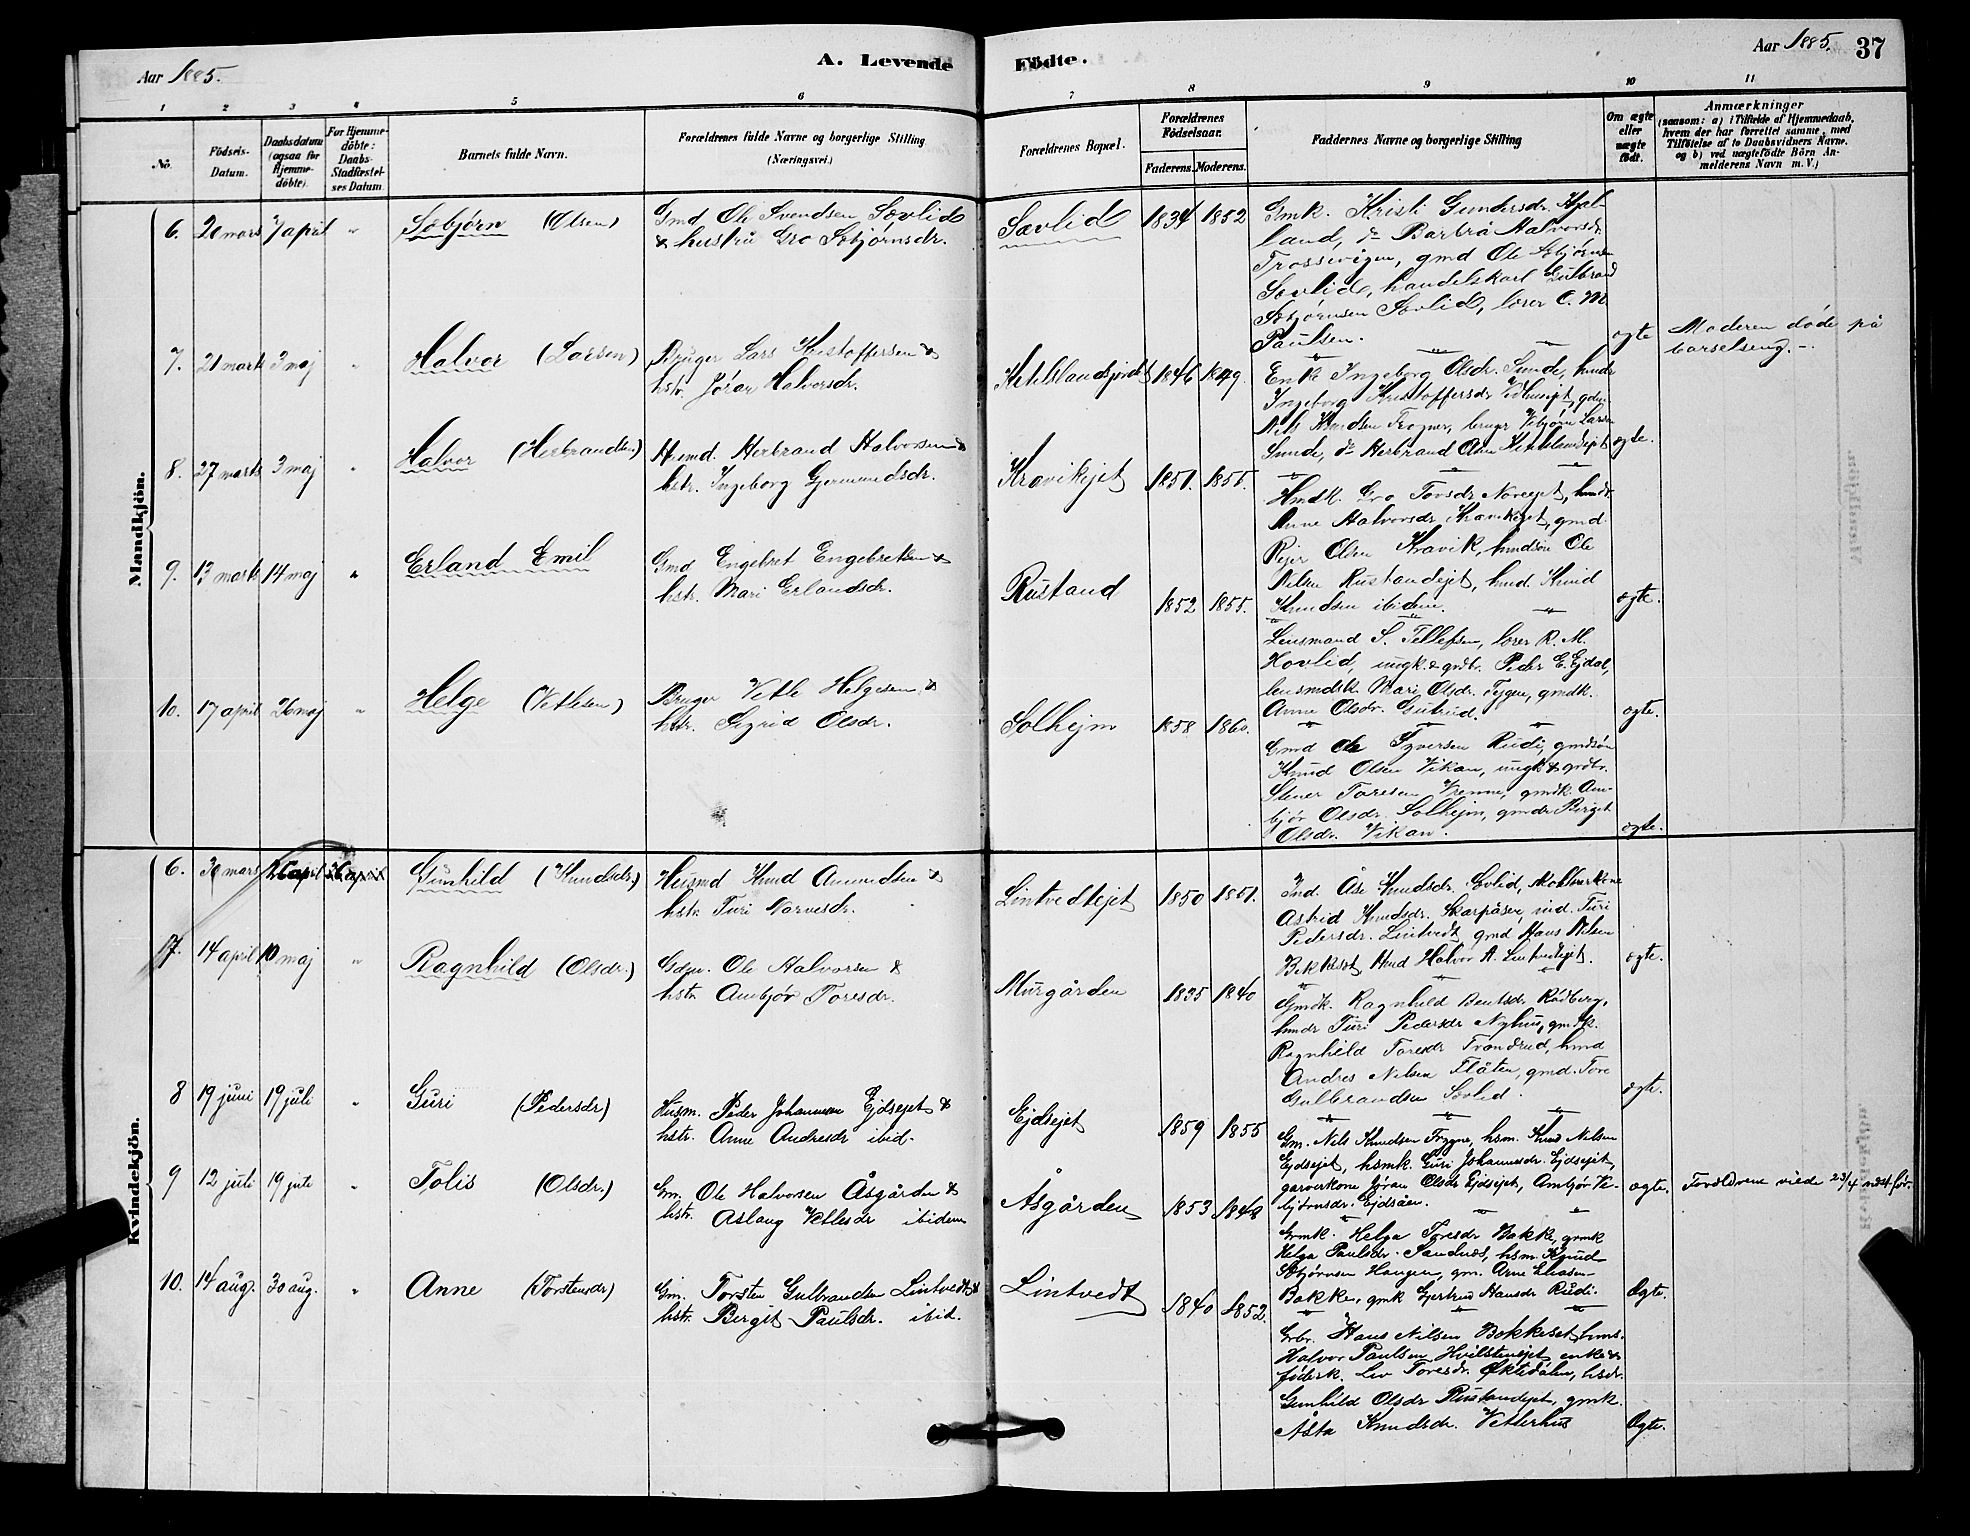 Aar 1885.
A. Levende
Fødte.
Aar 1885.
37
1 2 3 4 5 6 7 8 9 10 11
No.
Födsels-
Datum.
Daabsdatum
(ogsaa for
Hjemme-
døbte).
For Hjemme-
døbte:
Daabs-
Stadfæstel-
ses Datum
Barnets fulde Navn.
Forældrenes fulde Navne og borgerlige Stilling
(Næringsvei.)
Forældrenes Bopæl.
Forældrenes
Fødselsaar.
Faderens. Moderens.
Faddernes Navne og borgerlige Stilling
Om ægte
eller
uægte
født.
Anmærkninger
(saasom: a) i Tilfælde af Hjemmedaab,
hvem der har forrettet samme, med
Tilføielse af to Daabsvidners Navne.
og b) ved uægtefødte Börn An-
melderens Navn m. V.)
Mandkjön.
6. mars 7 april " Sebjørn (Olsen)
Gmd Ole Svendsen Sævlid
& hustru Gro Sebjørnsdr.
Sævlid 1834 1852
Gmk. Kristi Gundersdr.
land, do Barbra Halvorsdr
Trossevigen, gmd Ole Sebjørnsen
Sævlid, handelskarl Gulbrand
Sebjørnsen Sævlid, lærer C. M
Paulsen.
ægte
Moderen døde på
barselseng.-
7. 21 marts 3 maj " Halvor (Larsen)
Bruger Lars Kristoffersen &
hstr. Jøran Halvorsdr.
1846 1849.
Enke Ingeborg Olsdr. Sunde, husdr
Ingeborg Kristoffersdr
Nils Knudsen bruger Vebjørn Larsen
Sunde, do Herbrand
ægte.
8. 27 marts 3 maj " Halvor (Herbrandsen)
Husmd. Herbrand Halvorsen &
hstr. Ingeborg Gjermundsdr.
Kravikejet 1851. 1855.
Hmdk. Gro Torsdr husdr.
Anne Halvorsdr Kravikejet, gmd.
Rejer Olsen Kravik, hmdsøn Ole
Nilsen Rustandejet, hmd. Knud
Knudsen ibidem.
ægte.
9. 13 marts 14 maj " Erland Emil
Gmd Engebret Engebretsen &
hstr. Mari Erlandsdr.
Rustand 1852 1855.
Lensmand S. Tellefsen, lærer R. M.
Hovlid, ungk. & grdbr. Peder E. Ejdal,
lensmdsk Mari Olsdr. gmdk.
Anne Olsdr. Gutrud.
ægte.
10. 17 april 26 maj " Helge (Vetlesen)
Bruger Vetle Helgesen &
hstr. Sigrid Olsdr.
Solhejm 1858 1860.
Gmd Ole Syversen Rudi, gmdsøn
Knud Olsen Vikan, ungk & grdbr.
Stener Toresen Vrenne, gmdk. Am-
bjør Olsdr. Solhejm, gmdr Berget
Olsdr. Vikan.
ægte.
Kvindekjön.
6. 30 mars 26 april Gunhild (Knudsdr.)
Husmd Knud Amundsen &
hstr. Turi Narvesdr.
Lintvedtejet 1850 1851.
Ind. Åse Knudsdr. Sævlid,
Astrid Knudsdr. Skarpåsen, ind. Turi
Pedersdr. Lintvedt, gmd Hans Nilsen
Bekkeset, Hmd Halvor A. Lintvedtejet.
ægte.
7. 14 april 10 maj " Ragnhild (Olsdr.)
Ole Halvorsen &
hstr. Ambjør Toresdr.
Murgården 1835 1840
Gmdk. Ragnhild Bentsdr. Rødberg,
hmdr Turi Pedersdr Nyhus, gmdk.
Ragnhild Toresdr Trøndrud, hmd
Andres Nilsen Flåten, gmd. Tore
Gulbrandsen Sævlid.
ægte.
8 19 juni 19 juli " Guri (Pedersdr)
Husm. Peder Johannesen Ejdsejet &
hstr. Anne Andresdr ibid.
Ejdsejet 1859 1855
Gm. Nils Knudsen Frygne, hsm. Knud Nilsen
Ejdsejet, hsmk. Guri Johannesdr. Ejdsejet,
garverkone Jøran Olsdr Ejdsejet, Ambjør Ve-
bjørnsdr. Ejdsåen.
ægte.
9 12 juli 19 juli " Tolis (Olsdr.)
Gm. Ole Halvorsen Åsgården &
hstr. Aslaug Vetlesdr ibidem
Åsgården 1853 1848
Gmk. Helga Toresdr Bakke, gmk
Helga Paulsdr. Sandnes, hsm. Knud
Sebjørnsen Haugen, gm. Arne Eliasen
Bakke, gmk Gjertrud Hansdr Rudi.
Ægte.
Forældrene viede 23/4 næst før.
10. 14 aug. 30 aug. " Anne (Torstensdr)
Gm. Torsten Gulbrandsen Lintvedt &
hstr. Bergit Paulsdr. ibid.
Lintvedt 1840 1852.
Grbr. Hans Nilsen Bekkeset, hsm.
Halvor Paulsen Hvilstenejet, enke &
føderk. Liv Toresdr. Øktedalen, hsdr.
Gunhild Olsdr Rustandejet, gmk.
Åsta Knudsdr. Vetlerhus
Ægte.